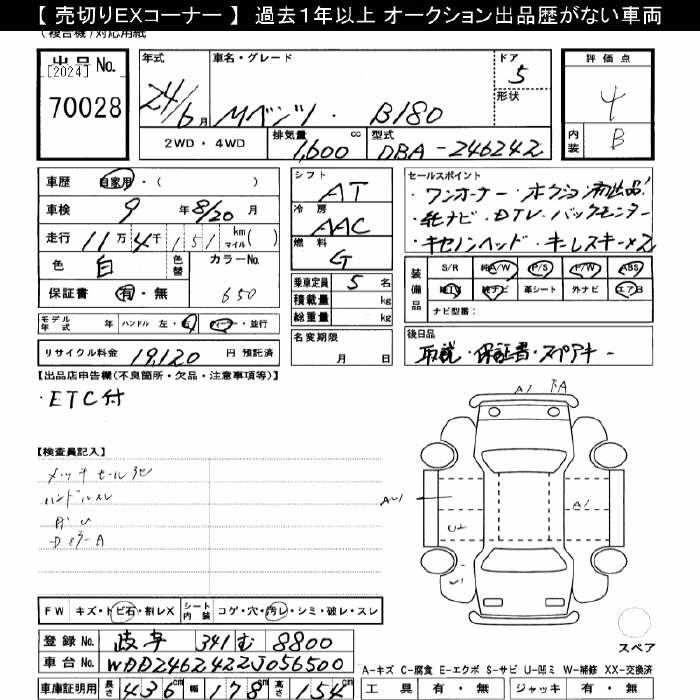 【 売切りEXコーナー 】 過去１年以上 オークション出品歴がない車両
(複合機)対応用紙
出品No. [2024] 70028
年式 24/6月
車名・グレード Mベンツ・B180
ドア 5
形状
評価点 4
内装 B
2WD・4WD
排気量 1,600 cc
型式 DBA-246242
車歴 自家用・( )
車検 9年8/20月
走行 11万4千151 km マイル( )
色 白 色替 カラーNo. 650
保証書 有・無
モデル年式 年 ハンドル 左・右 ディーラー・並行
リサイクル料金 19,120 円 預託済
シフト AT
冷房 AAC
燃料 G
乗車定員 5名
積載量 kg
総重量 kg
名変期限 月 日
セールスポイント
・ワンオーナー・オークション初出品!
・純ナビ・DTV・バックモニター
・キセノンヘッド・キーレスキー×2
装備品
S/R 純A/W P/S P/W ABS
純TV 純ナビ 革シート 外ナビ エアB
ナビ型番:
後日品
取説・保証書・スペアキー
【出品店申告欄(不良箇所・欠品・注意事項等)】
・ETC付
【検査員記入】
ハンドルスレ
FW キズ・トビ石・割レX シート内装 コゲ・穴・汚レ・シミ・破レ・スレ
A1
A1
U2
スペア
登録No. 岐阜 341 む 8800
車台No. WDD2462422J056500
A-キズ C-腐食 E-エクボ S-サビ U-凹ミ W-補修 XX-交換済
車庫証明用 長さ 436cm 幅 178cm 高さ 154cm
工具 有・無 ジャッキ 有・無